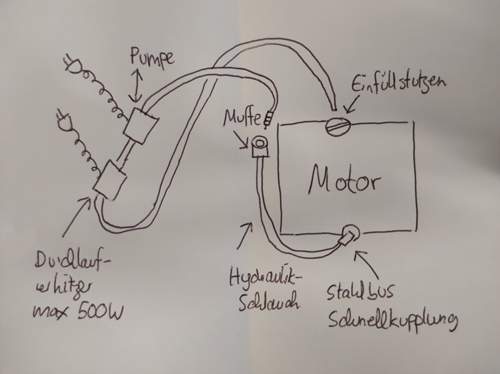 Pumpe
Einfüllstutzen
Muffe
Motor
Durchlauf-
erhitzer
max 500W
Hydraulik-
Schlauch
Stahlbus
Schnellkupplung